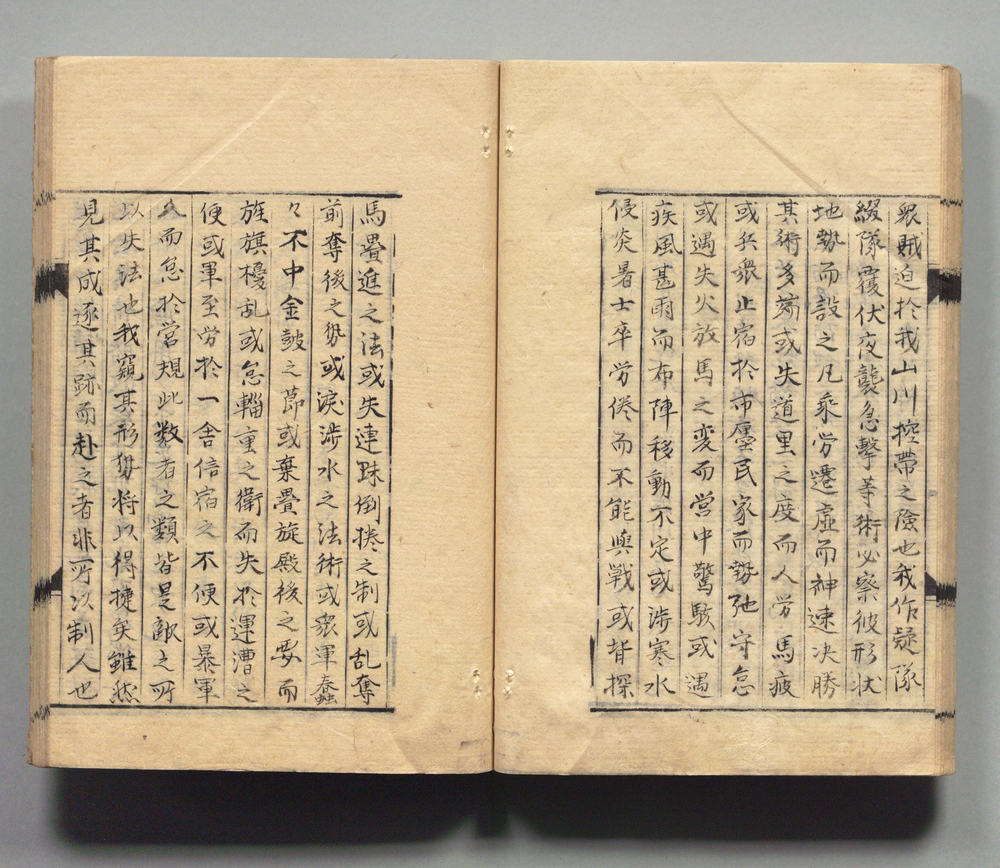 眾賊迫於我山川控帶之險也我作疑隊
綴隊覆伏夜襲急擊等術必察彼形状
地勢而設之凡乘労遷虛而神速决勝
其術多端或失道里之度而人労馬疲
或兵眾止宿於市廛民家而勢弛守怠
或遇失火放馬之変而営中驚駭或遇
疾風甚雨而布陣移動不定或涉寒水
侵炎暑士卒労倦而不能與戰或背探
馬疊進之法或失連珠倒捲之制或乱奪
前奪後之勢或淚涉水之法術或眾軍蠢
々不中金鼓之節或棄疊旋殿後之要而
旌旗擾乱或怠輜重之衛而失於運漕之
便或軍至労於一舍信宿之不便或暴軍
久而怠於営規此数者之類皆是敵之所
以失法也我窺其形勢将以得捷矣雖然
見其成逐其跡而赴之者非所以制人也